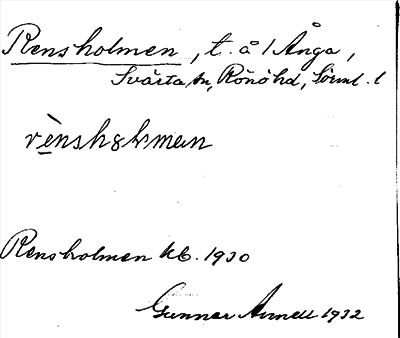 Rensholmen, t. å 1 Ånga,
Svärta sn, Rönö hd, Sörml. l
rènshɷlman
Rensholmen kb. 1930
Gunnar Arnell 1932